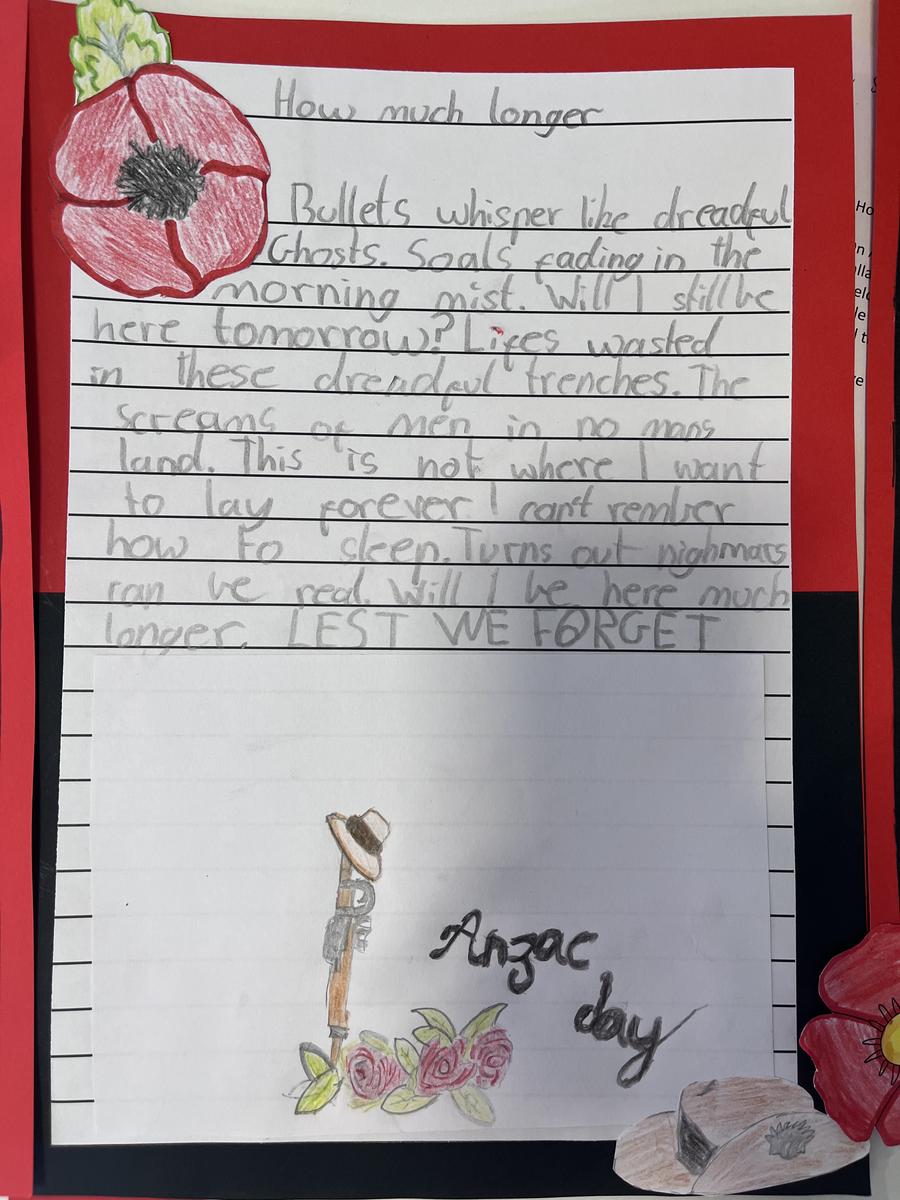 How much longer
Bullets whisper like dreadful
Ghosts. Soals fading in the
morning mist. Will I still be
here tomorrow? Lifes wasted
in these dreadful trenches. The
screams of men in no mans
land. This is not where I want
to lay forever I can't rember
how to sleep. Turns out nighmars
can be real. Will I be here much
longer. LEST WE FORGET
Anzac
day